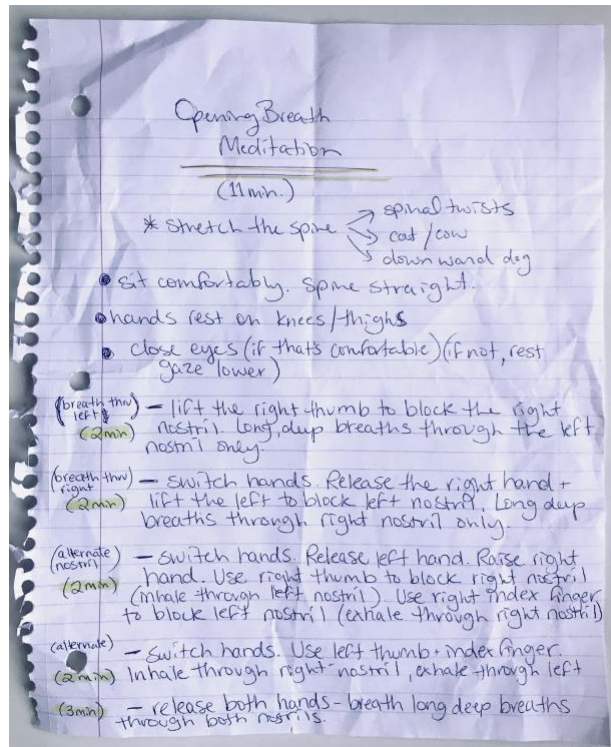 Opening Breath
Meditation
(11 min.)
* stretch the spine → spinal twists
→ cat/cow
→ downward dog
• sit comfortably. Spine straight.
• hands rest on knees/thighs
• close eyes (if that's comfortable) (if not, rest
gaze lower)
(breath thru left) – lift the right thumb to block the right
(2min) nostril. Long, deep breaths through the left
nostril only.
(breath thru right – switch hands. Release the right hand +
(2min) lift the left to block left nostril. Long deep
breaths through right nostril only.
(alternate nostril) – switch hands. Release left hand. Raise right
(2min) hand. Use right thumb to block right nostril
(inhale through left nostril). Use right index finger
to block left nostril (exhale through right nostril)
(alternate) – switch hands. Use left thumb + index finger.
(2min) Inhale through right nostril, exhale through left
(3min) – release both hands – breath long deep breaths
through both nostrils.